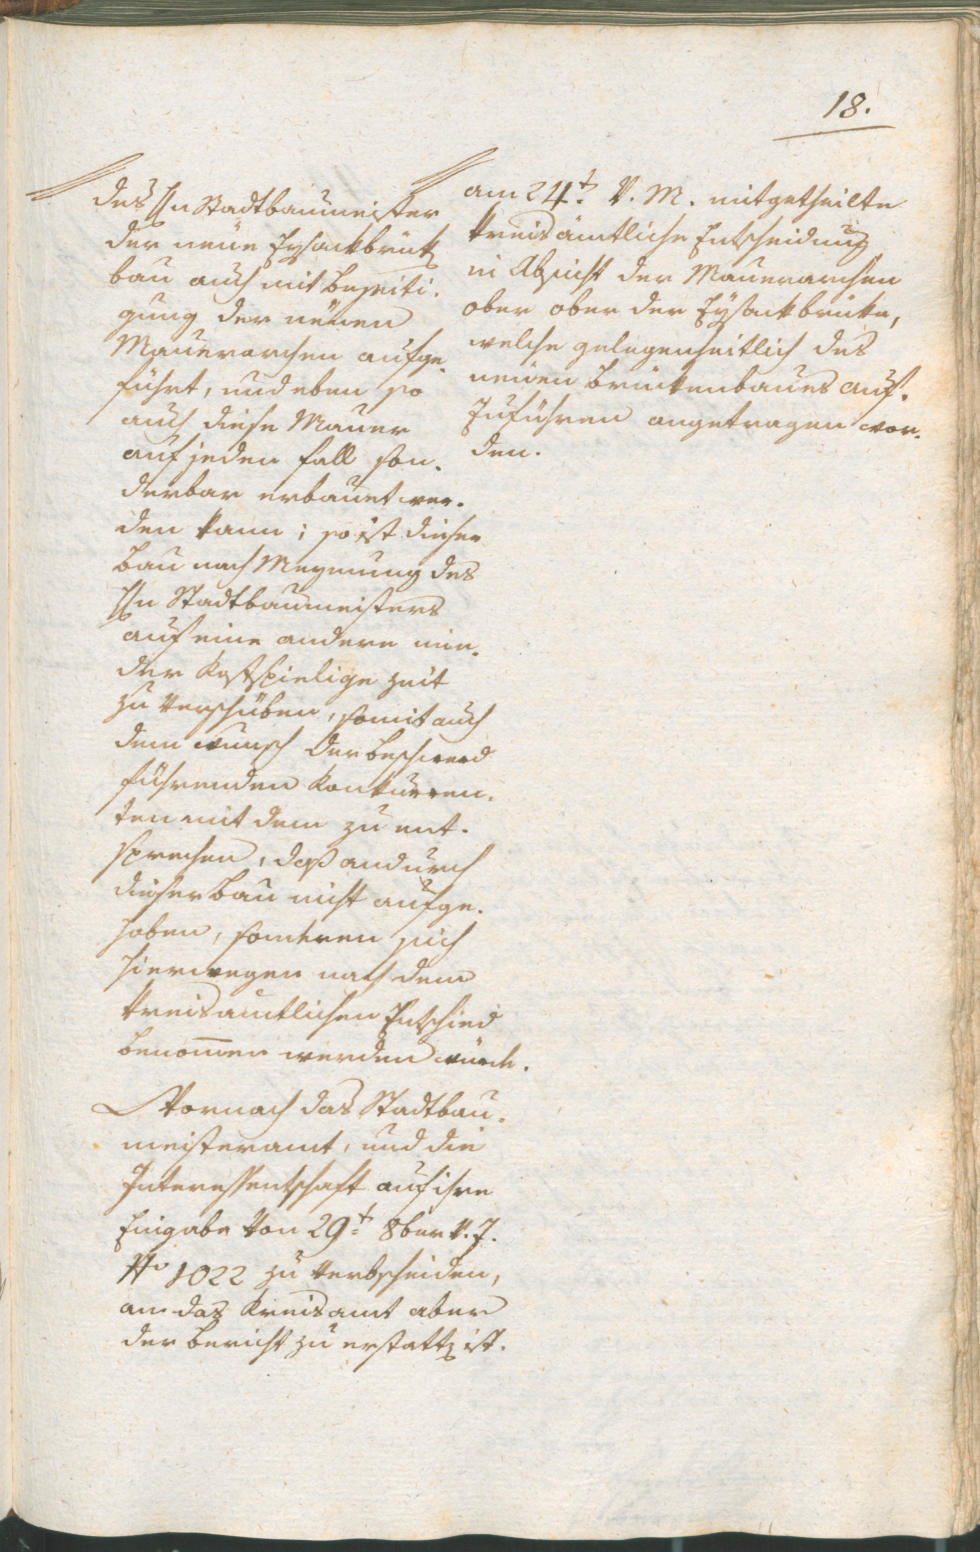 18.
des Hn Stadtbaumeister
der neüe Eysackbrük
bau auch mit beseiti-
gung der neüen
Mauerarchen aufge-
führt, und eben so
auch diese Mauer
auf jeden fall son-
derbar erbauet wer-
den kann; so ist dieser
bau nach Meynung des
Hn Stadtbaumeisters
auf eine andere min-
der kostspielige zeit
zu verschüben, somit auch
dem wunsch der beschwerd
führenden Konkurren-
ten mit dem zu ent-
sprechen, daß andurch
dieser bau nicht aufge-
hoben, sonderen sich
hierwegen nach dem
kreisamtlichen Entschied
benom̅en werden würde.
Wornach das Stadtbau-
meisteramt, und die
Interessentschaft auf ihre
Eingabe von 29t 8ber v. J.
No 1022 zu verbscheiden,
an das Kreisamt aber
der bericht zu erstatt ist.
am 24t v. M. mitgetheilte
kreisämtliche Entscheidung
in Absicht der Mauerarchen
ober ober der Eysackbrüke,
welche gelegenheitlich des
neüen brückenbaues auf-
zuführen angetragen wor-
den.